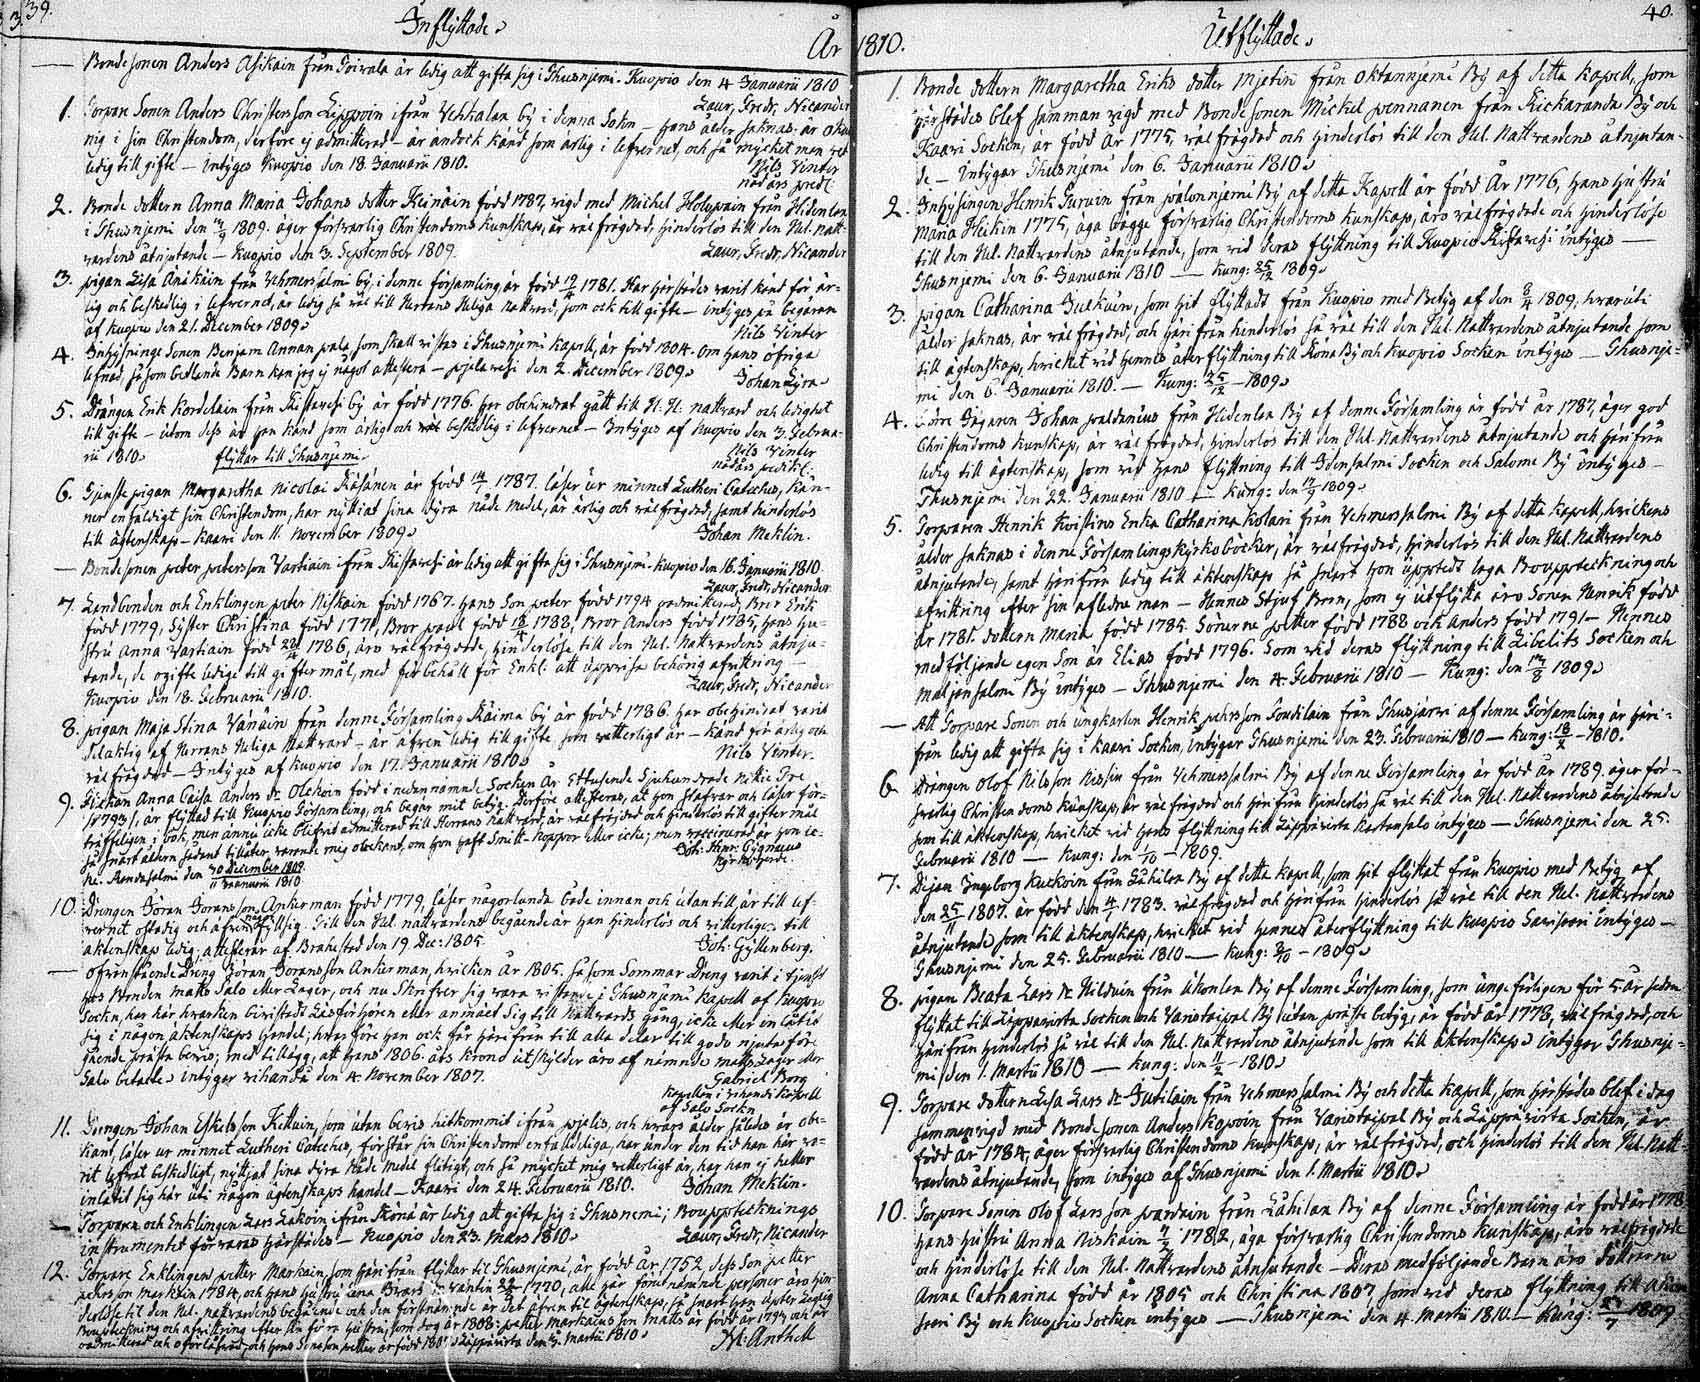 39.
Inflyttade
År
Bonde sonen Anders Asikain från Toivala är ledig att gifta sig i Thusnjemi. Kuopio den 4 Januarii 1810
Laur, Fredr, Nicander
1. Torpare Sonen Anders Christersson Lippoin ifrån Vehkalax by i denna Sokn – hans ålder saknas, är okun
nig i sin Christendom, derföre ej admitterad – är ändock känd som ärlig i lefvernet, och så mycket man vet
ledig till gifte – intÿges Kuopio den 18 Januarii 1810.
Nils Vinter
nådårs pred.
2. Bonde dottern Anna Maria Johans dotter Keinäin född 1787, vigd med Michel Holopain från Hidenlax
i Thusnjemi den 1809. äger försvarlig Christendoms kunskap, är välfrägdad, hinderlös till den Hel. Natt-
vardens åtnjutande – Kuopio den 3 September 1809.
Laur, Fredr, Nicander
3. pigan Lisa från Vehmersalmi by, i denne församling, är född 1781. Har härstädes varit känd för är-
lig och beskedlig i lefvernet, är ledig så väl till Herrans Heliga Nattvard, som ock till gifte – intÿges på begäran
af Kuopio den 21. December 1809
Nils Vinter
4. Inhÿsinge Sonen Benjam Annanpala som skall vistas i Thusnjemi Kapell, är född 1804. Om hans öfriga
lefnad, så som betlande Barn kan jag ej något attestera – pjelavesi den 2. December 1809
Johan Lÿra
5. Drängen Erik Kordelain från Kestavesi by är född 1776. har obehindrat gått till H. H. nattvard och ledighet
till gifte – utom dess är han känd som ärlig och beskedlig i lefvernet – Intÿges af Kuopio den 3. Februa-
rii 1810
Nils Vinter
flÿttar till Thusnjemi
nådårs predik.
6. Tjenste pigan Margaretha Nicolai Räsänen är född 1787. läser ur minnet Lutheri Cateches, kän-
ner enfaldigt sin Christendom, har nyttiat sina dÿra nåde medel, är ärlig och välfrägdad, samt hinderlös
till ägtenskap – Kaavi den 11. November 1809
Johan Meklin.
Bonde sonen peter petersson Vartiain ifrån Kestavesi är ledig att gifta sig i Thusnjemi. Kuopio den 16. Januarii 1810.
Laur, Fredr, Nicander
7. Landbonden och Enklingen peter Niskain född 1767. hans Son peter född 1794 oadmitterad, Bror Erik
född 1779, Sÿster Christina född 177, Bror paul född 1782, Bror Anders född 1785, hans hu-
stru Anna Vartiain född 1786, äro välfrägdade, hinderlöse till den Hel. Nattvardens åtnju-
tande, de ogifte ledige till giftermål, med förbehåll för Enkl. att uppvisa behörig afvittring –
Kuopio den 18. Februarii 1810.
Laur, Fredr, Nicander
8. pigan Maja Stina Vänäin från denne Församling Räima by är född 1786. har obehindrat varit
delaktig af Herrans Heliga Nattvard – är äfven ledig till gifte som vitterligt är – känd för ärlig och
välfrägdad – Intÿges af Kuopio den 17. Januarii 1810
Nils Vinter.
9. Flickan Anna Caisa Anders dr Olekoin född i nedannämnde Socken År Ettusende Sjuhundrade Nittie Tre
/1793/, är flÿttad till Kuopio Församling, och begär mit betÿg. Derföre attesteras, at hon stafvar och läser för-
träffeligen i bok, men ännu icke blifvit admitterad till Herrans Nattvard, är välfrägdad och hinderlös till giftermål
så snart åldern sådant tillåter, varande mig obekant, om hon haft Smitt-koppor eller icke; men vaccinerad är hon ic-
ke. Randasalmi den 30 December 1809
11 Januarii 1810
Joh: Henr: Cÿgnæus
Kÿrkoherde.
10. Drengen Jöran Joransson Ankerman född 1779, läser någorlunda både innan och utantill, är till lef-
vernet ostadig och äfven något fÿllsig. Till den Hel. nattvardens begående är han hinderlös och vitterligen till
äktenskap ledig, attesterar af Brahestad den 19 Dec: 1805.
Joh: Gÿllenberg.
ofvanstående Dreng Jöran Joransson Ankerman, hvilken År 1805. såsom Sommar Dreng varit i tjenst
hos Bonden Matts Salo eller Lager, och nu skrifver sig vara vistande i Thusnjemi Kapell af Kuopio
Sockn, har här hvarken bivistat Läsförhören eller anmält sig till Nattvards gång, icke eller inlåtit
sig i någon äktenskaps handel; hvarföre han ock får härifrån till alla delar till godo njuta före
gående präste bevis; med tillägg, att hans 1806. års krono utskÿlder äro af nämnde Matts Lager eller
Salo betalte, intÿger Vihanda den 4. November 1807.
Gabriel Borg
Kapellan i Vihandi Kapell
af Salo Sockn
11. Drengen Johan Eskelsson Kettuin, som utan bevis hitkommit ifrån pjelis, och hvars ålder således är obe-
kant, läser ur minnet Lutheri Cateches, förstår sin Christendom enfaldeliga, har under den tid han här va-
rit lefvat beskedligt, nÿttjat sina dÿra Nåde Medel flitigt, och så mÿcket mig vetterligt är, har han ej heller
inlåtit sig här uti någon ägtenskaps handel – Kaavi den 24. Februarii 1810.
Johan Meklin.
Torparen och Enklingen Lars Lakoin ifrån är ledig att gifta sig i Thusnemi; Bouppteknings
instrumentet förvaras härstädes – Kuopio den 23. Mars 1810
Laur, Fredr, Nicander
12. Torpare Enklingen petter Markain, som härifrån flÿttar til Thusnjemi, är född år 1752, dess Son petter
petersson Markain 1784, och hans hustru 1770, alle här förutnämnde personer äro hin-
derlöse til den Hel. nattvardens begående och den förstnämnde är det äfven til ägtenskap, så snart han
Bouppteckning och afvittring efter sin förra hustru, som dog år 1808: petter Markains son Matts är född år 1794 och är
oadmitterad och oförlåfvad, och hans petter är född 180 Leppävirta den 5. Martii 1810
M: Anthell
40.
Utflÿttade
1810.
1. Bonde dottern Margaretha Eriks dotter Mjetin från Oktannjemi Bÿ af detta Kapell, som
härstädes blef samman vigd med Bonde sonen Mickel pennanen från Kickaranda Bÿ och
Kaavi Socken, är född År 1775, välfrägdad och hinderlös till den Hel. Nattvardens åtnjutan-
de – intÿgar Thusnjemi den 6. Januarii 1810
2. Inhÿsingen Henrik Turuin från palonnjemi Bÿ af detta Kapell är född År 1776, hans hustru
Maria Heikin 1775, äga bägge försvarlig Christendoms kunskap, äro välfrägdade och hinderlöse
till den Hel. Nattvardens åtnjutande, som vid deras flÿttning till Kuopio Kestavesi intÿges –
Thusnjemi den 6. Januarii 1810 — Kung: 25/12 1809
3. pigan Catharina Tuckuin, som hit flÿttadt från Kuopio med Betÿg af den 8/4 1809. hvaruti
ålder saknas, är välfrägdad, och härifrån hinderlös så väl till den Hel. Nattvardens åtnjutande som
till ägtenskap, hvicket vid hennes återflÿttning till Röna Bÿ och Kuopio Socken intÿges – Thusnje-
mi den 6. Januarii 1810. — Kung: 25/12 – 1809
4. Johan paldanius från Hidenlax Bÿ af denne Församling är född År 1787, äger god
Christendoms kunskap, är välfrägdad, hinderlös till den Hel. Nattvardens åtnjutande och härifrån
ledig till ägtenskap, som vid hans flÿttning till Idensalmi Socken och Salome Bÿ intÿges –
Thusnjemi den 22. Januarii 1810 — Kung: den 17/9 1809
5. Torparen Henrik Koistins Enka Catharina Kolari från Vehmersalmi Bÿ af detta Kapell, hvickens
ålder saknas i denne Församlings kÿrkoböcker, är välfrägdad, hinderlös till den Hel. Nattvardens
åtnjutande, samt härifrån ledig till äktenskap så snart hon upptedt laga Bouppteckning och
afvittring efter sin afledne man – Hennes Stjuf Barn, som ej utflÿtta äro Sonen Henrik född
År 1781. dottern Maria född 1785. Sönerne petter född 1788 och Anders född 1791 – Hennes
medföljande egen Son är Elias född 1796. Som vid deras flÿttning till Libelits Socken och
Maljansalmi Bÿ intÿges – Thusnjemi den 4. Februarii 1810 — Kung: den 13/8 1809
Att Torpare Sonen och ungkarlen Henrik pehrsson Toudilain från Thusjärvi af denne Församling är häri-
från ledig att gifta sig i Kaavi Socken, intÿgar Thusnjemi den 23. Februarii 1810 – Kung: 18/2 – 1810.
6. Drängen Olof Nilsson Nissin från Vehmersalmi Bÿ af denne Församling är född År 1789. äger för-
svarlig Christendoms kunskap, är välfrägdad och härifrån hinderlös så väl till den Hel. Nattvardens åtnjutande
som till äktenskap, hvicket vid hans flÿttning till Läppävirta Kastensalo intÿges – Thusnjemi den 25.
Februarii 1810 — Kung: den 1/10 – 1809.
7. pigan Ingeborg Kuckoin från Läkilax Bÿ af detta Kapell, som hit flÿttat från Kuopio med Betÿg af
den 25/11 1807. är född den 4/1 1783. välfrägdad och härifrån hinderlös så väl till den Hel. Nattvardens
åtnjutande som till äktenskap, hvicket vid hennes återflÿttning till Kuopio Savisaari intÿges –
Thusnjemi den 25. Februarii 1810 — Kung: – 1809
8. pigan Beata Lars dr Hilduin från Ukonlax Bÿ af denne Församling, som unge färligen för 5 år sedan
flÿttat till Läppävirta Socken och Varistaipal Bÿ utan präste betÿg, är född år 1778, välfrägdad, och
härifrån hinderlös så väl till den Hel. Nattvardens åtnjutande som till äktenskap intÿger Thusnje-
mi den 1. Martii 1810 — Kung: den 11/2 – 1810
9. Torpare dottern Lisa Lars dr Jutilain från Vehmersalmi Bÿ och detta Kapell, som härstädes blef i dag
sammanvigd med Bonde sonen Anders Kopoin från Varistaipal Bÿ och Läppävirta Socken, är
född år 1784, äger försvarlig Christendoms kunskap, är välfrägdad, och hinderlös till den Hel. Natt-
vardens åtnjutande, som intÿges af Thusnjemi den 1. Martii 1810
10. Torpare Sonen Olof Larsson pardain från Läkilax Bÿ af denne Församling är född år 1778
hans hustru Anna Niskain 1782, äga försvarlig Christendoms kunskap, äro välfrägdade
och hinderlöse till den Hel. Nattvardens åtnjutande – Deras medföljande Barn äro döttrarne
Anna Catharina född år 1805 och Christina 1807, som vid deras flÿttning till
Bÿ och Kuopio Socken intÿges — Thusnjemi den 4. Martii 1810. – Kung: 1809